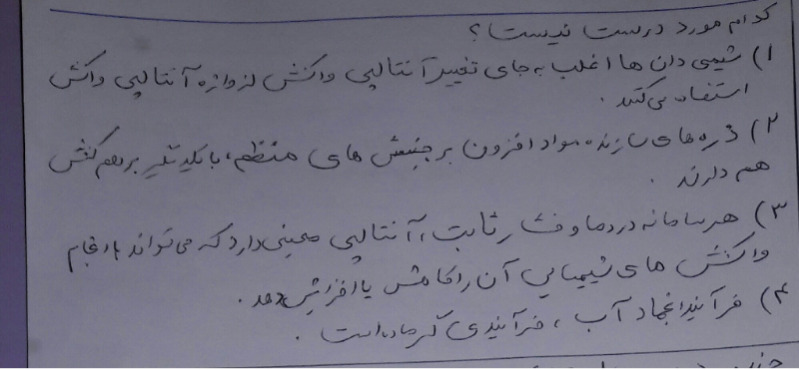 کدام مورد درست نیست؟
۱) شیمی دان ها اغلب به جای تغییر آنتالپی واکنش از واژه آنتالپی واکنش
استفاده می کنند.
۲) ذره های سازنده مواد افزون بر جنبش های منظم، با یکدیگر برهم کنش
هم دارند.
۳) هر سامانه در دما و فشار ثابت، آنتالپی معینی دارد که می تواند با انجام
واکنش های شیمیایی آن را کاهش یا افزایش دهد.
۴) فرآیند انجماد آب، فرآیندی گرماده است.